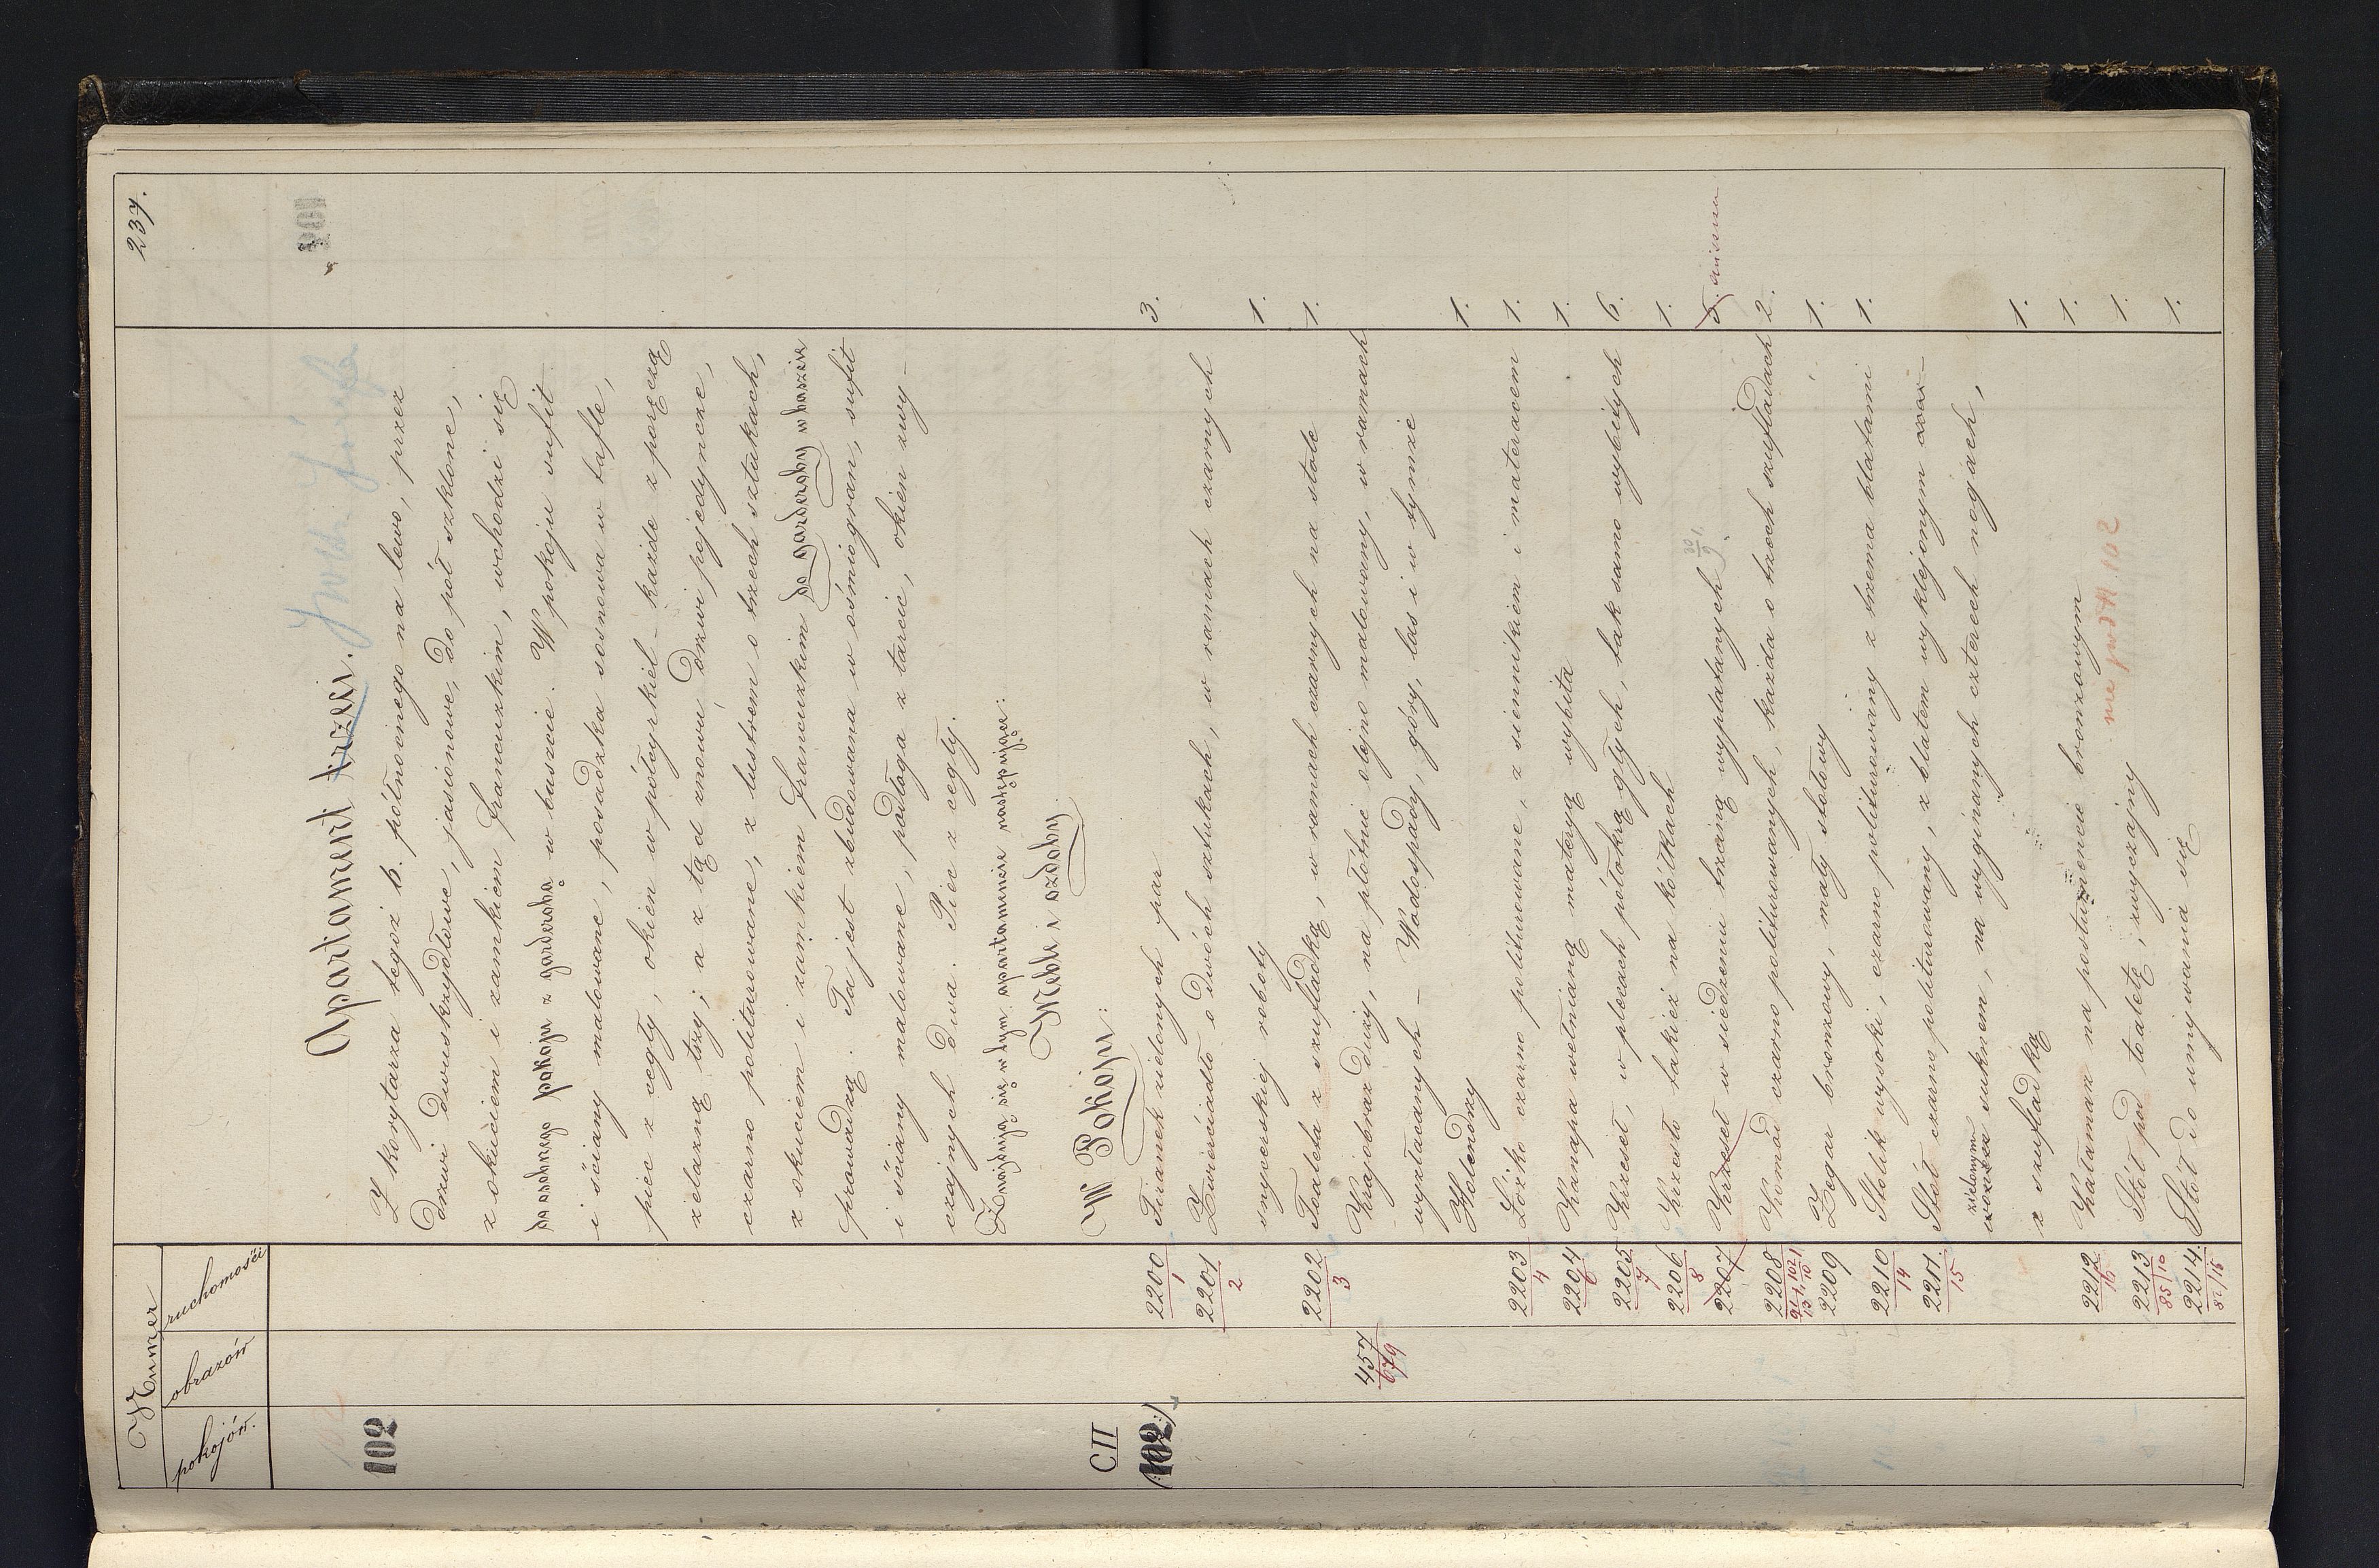 237.
Numer
pokojów. obrazów ruchomości
102
Apartament trzeci.
102
Z korytarza tegoż b. północnego na lewo, przez
drzwi dwuskrzydłowe, jasionowe, do pół szklone,
z okuciem i zamkiem francuzkim, wchodzi się
do osobnego pokoju z garderobą w baszcie. W pokoju sufit
i ściany malowane, posadzka sosnowa w tafle,
piec z cegły, okien w półcyrkiel - każde z poręczą
żelazną trzy; a z tąd znowu drzwi pojedyncze,
czarno politurowane, z lustrem o trzech sztukach,
z okuciem i zamkiem francuzkim do garderoby w baszcie
prowadzą. Ta jest zbudowana w ośmiogran, sufit
i ściany malowane, podłoga z tarcic, okien zwy-
czajnych dwa. Piec z cegły.
Znajdują się w tym apartamencie następujące:
Meble i ozdoby.
CII
W Pokoju:
(102)
2200 1 Firanek zielonych par 3.
2201 2 Zwierciadło o dwóch sztukach, w ramach czarnych
snycerskiej roboty 1.
2202 3 Toaleta z szufladką, w ramach czarnych na stole 1.
457 679 Krajobraz duży, na płótnie olejno malowany, w ramach
wyzłacanych - Wodospady, góry, las i w tymże
Holendrzy 1.
2203 4 Łóżko czarno politurowane, z siennikiem i materacem 1.
2204 6 Kanapa wełnianą materyą wybita 1.
2205 7 Krzeseł, w plecach półokrągłych, tak samo wybitych 6.
2206 8 Krzesło takież na kółkach 1.
2207 Krzeseł w siedzeniu trzciną wyplatanych 5.
2208 Komód czarno politurowanych, każda o trzech szufladach 2.
2209 Zegar bronzowy, mały stołowy 1.
2210 14 Stolik wysoki, czarno politurowany z trzema blatami 1.
2211. 15 Stół czarno politurowany, z blatem wyklejonym
zielonym
suknem, na wyginanych czterech nogach,
z szufladką 1.
2212 16 Kałamarz na postumencie bronzowym 1.
2213 85/10 Stół pod toaletę, zwyczajny nie pod N. 102 1.
2214. Stół do umywania się 1.